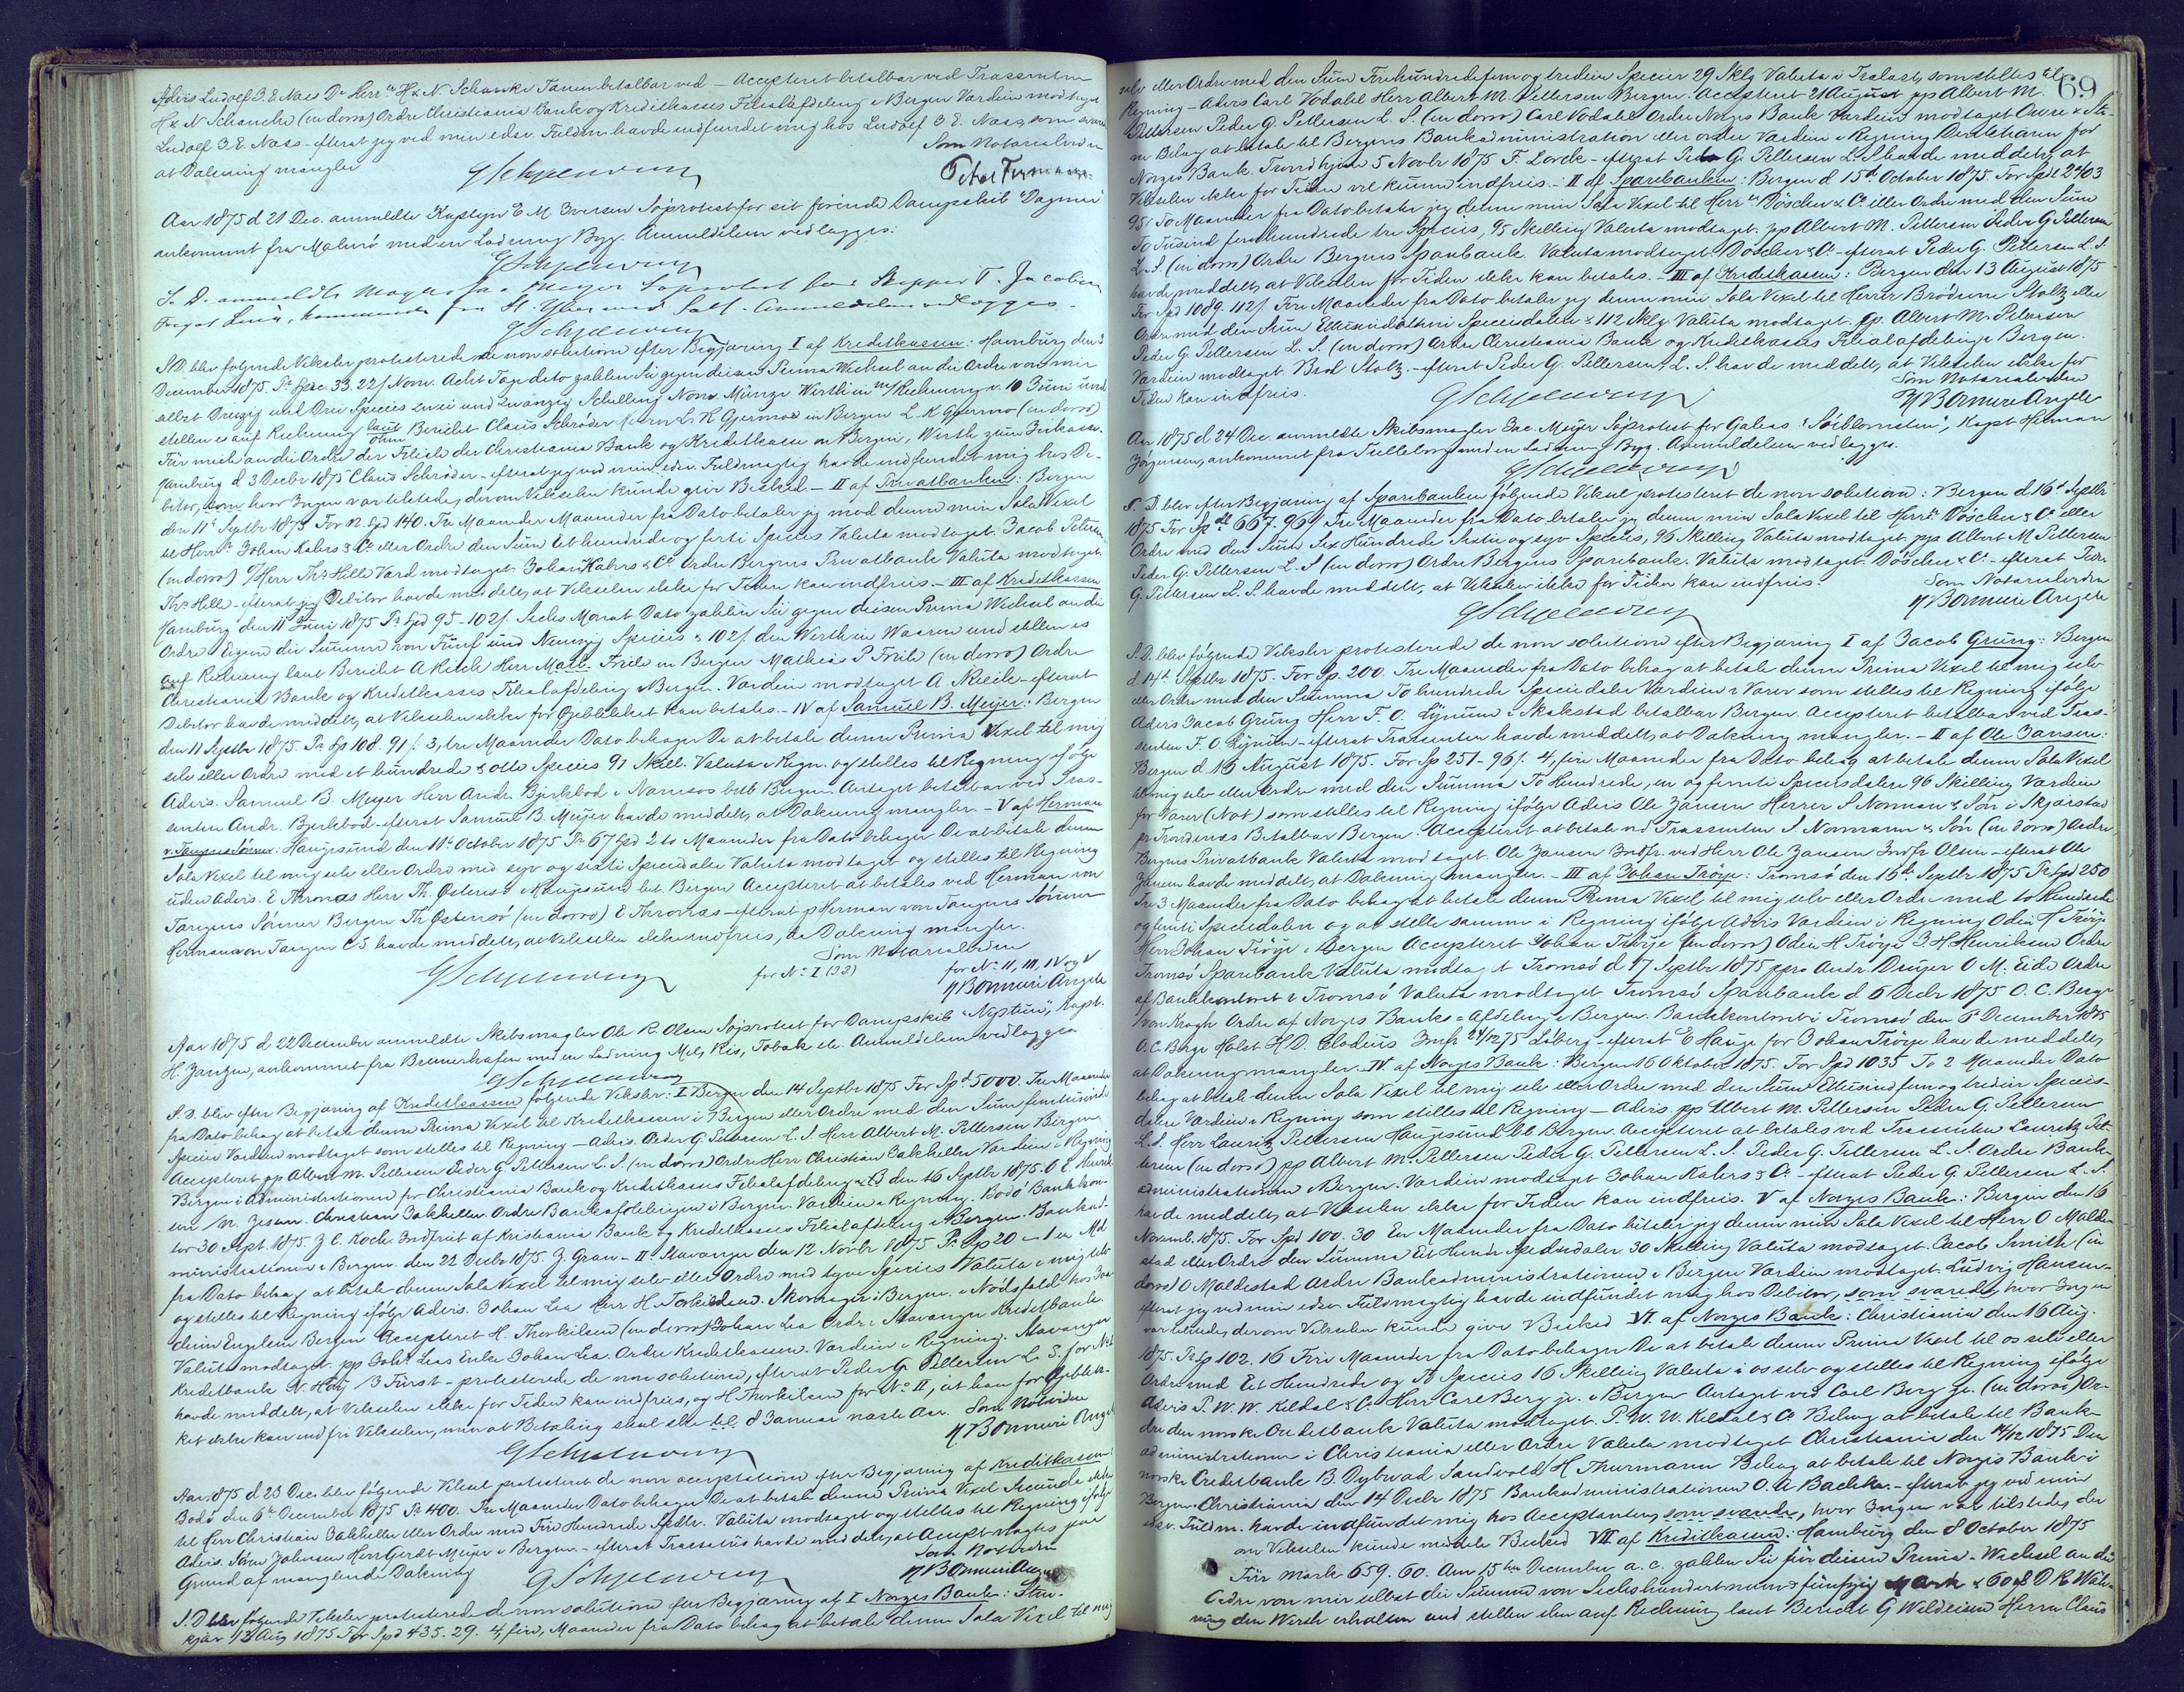 Advis Ludolf J. E. Naes De Herr H & N. Schanke Tanen betalbar ved - Accepteret betalbar ved Trassenten
H & N Schancke (in dorso) Ordre Christiania Bank og Kreditkasses Filialafdeling i Bergen Værdien modtaget
Ludolf J. E. Naes - efterat jeg ved min edsv. Fuldm. havde indfundet mig hos Ludolf J. E. Naes, som svarede
at Dækning mangler
Som Notarialvidne
Aar 1875 d 21 Dec. anmeldte Kaptejn E M Iversen Søprotest for sit førende Dampskib "Dagmar"
ankommet fra Malmø med en Ladning Byg. Anmeldelsen vedlægges.
S. D. anmeldte Meyer Søprotest for Skipper T. Jacobsen
Fregat ankommende fra St. Ybes med Salt. Anmeldelsen vedlægges.
S.D. blev følgende Veksler protesterede de non solutione efter Begjæring I af Kreditkassen: Hamburg den 3
December 1875. Pr Spec. 33. 22/ Norw. Acht Tage dato zahlen Sie gegen diesen Prima Wechsel an die Ordre von mir
selbst Dreizig und Drei Species zwei und zwanzig Schilling Norw. Münze Werth in m/Rechnung v. 10 Juni und
stellen es auf Rechnung laut
ohne Bericht Claus Schröder Herrn L. K Gjermoe in Bergen L. K Gjermo (in dorso)
Für mich an die Ordre der Filiale der Christiania Bank og Kreditkasse in Bergen, Werth zum Incasso.
Hamburg d 3 Decbr 1875 Claus Schröder - efterat jeg ved min edsv. Fuldmægtig havde indfundet mig hos De-
bitor, som, hvor Ingen var tilstede, der om Vekselen kunde give Besked - II af Privatbanken: Bergen
den 11te Septbr 1875 For N. Spd 140. Tre Maaneder Maaneder fra Dato betaler jeg mod denne min Sola Vexel
til Herr Johan Kahrs & Co eller Ordre den Sum Et hundrede og forti Species Valuta modtaget. Jacob Petersen
(in dorso) Herr Ths Hille Værd modtaget. Johan Kahrs & Co Ordre Bergens Privatbank Valuta modtaget
Ths Hille - efterat jeg Debitor havde meddelt, at Vekselen ikke for Tiden kan indfries. - III af Kreditkassen
Hamburg den 11 Juni 1875 Pr Spd 95 - 102/. Sechs Monat Dato zahlen Sie gegen diesen Prima Wechsel an die
Ordre Eigene die Summe von Fünf und Neunzig Species & 102/. den Werth in Waaren und stellen es
auf Rechnung laut Bericht A Reiche Herr Math. Friele in Bergen Mathias P Friele (in dorso) Ordre
Christiania Bank og Kreditkasses Filialafdeling i Bergen. Værdien modtaget A. Reiche - efterat
Debitor havde meddelt, at Vekselen ikke for Øjeblikket kan betales. - IV af Samuel B. Meyer: Bergen
den 11 Septbr 1875. Pr Sp 108. 91/. 3, tre Maaneder Dato behager De at betale denne Prima Vexel til mig
selv eller Ordre med et hundrede & otte Species 91 Skill. Valuta i Regn. og stilles til Regning ifølge
Advis. Samuel B. Meyer Herr Andr. Bjerkbod i Namsos bett. Bergen Antaget betalbar ved Tras-
senten Andr. Bjerkbod - efterat Samuel B. Meyer havde meddelt, at Dækning mangler. - V af Herman
v. Tangens Sønner: Haugesund den 11te October 1875 Pr 67 Spd 2 to Maaneder fra Dato behager De at betale denne
Sola Vexel til mig selv eller Ordre med syv og sexti Speciedaler Valuta modtaget og stilles til Regning
uden Advis. E Thronæs Herr Th. Østensø i Haugesund bet. Bergen Accepteret at betales ved Herman von
Tangens Sønner Bergen Th Østensø (in dorso) E Thronæs - efterat p Herman von Tangens Sønner
Herman von Tangen C S havde meddelt, at Vekselen ikke indfries, da Dækning mangler.
Som Notarialvidne
for No I (JJ) for No II, III, IV og V
Aar 1875 d 22 December anmeldte Skibsmægler Ole R. Olsen Søprotest for Dampskib "Neptun", Kapt.
H. Jansen, ankommet fra Bremerhafen med en Ladning Mel, Ris, Tobak etc. Anmeldelsen vedlægges
S. D. blev efter Begjæring af Kreditkassen følgende Veksler: I Bergen den 14 Septbr 1875 For Spd 5000. Tre Maaneder
fra Dato behag at betale denne Prima Vexel til Kreditkassen i Bergen eller Ordre med den Sum femtusinde
Specier Værdien modtaget som stilles til Regning - Advis. Peder G. Pettersen L. S. Herr Albert M. Pettersen Bergen
Accepteret pp Albert M. Pettersen Peder G. Pettersen L. S. (in dorso) Ordre Herr Christian Jakhelln Værdien i Regning
Bergen i Administrationen for Christiania Bank og Kreditkasses Filialafdeling d. 16 Septbr 1875.
M. Jesen. Christian Jakhelln. Ordre Bankafdelingen i Bergen. Værdien i Regning. Bodø Bankkon-
tor 30 Sept. 1875. J C. Koch. Indfriet af Kristiania Bank og Kreditkasses Filialafdeling i Bergen. Bankad-
ministrationen i Bergen den 22 Decbr 1875. J Gran - II Stavanger den 12 Novbr 1875 Pr Sp 20 - 1 en Md
fra Dato behag at betale denne Sola Vexel til mig selv eller Ordre med tyve Species Valuta i mig selv
og stilles til Regning ifølge Advis. Johan Lea Herr H. Torkildsen. Skomager i Bergen. i Nødsfald hos
Engelsen Bergen Accepteret H. Thorkilsen (in dorso) Johan Lea Ordre Stavanger Kreditbank
Valuta modtaget. pp Johs Leas Enke Johan Lea. Ordre Kreditkassen. Værdien i Regning. Stavanger
Kreditbank N. Høy B Fürst - protesterede de non solutione, efterat Peder G. Pettersen L. S. for No I
havde meddelt, at Vekselen ikke for Tiden kan indfries, og H. Thorkilsen for No II, at han for Øjeblik-
ket ikke kan indfri Vekselen, men at Betaling skal ske til 8 Januar næste Aar.
Som Notvidne
Aar 1875 d 23 Dec. blev følgende Veksel protesteret de non acceptatione efter Begjæring af Kreditkassen:
Bodø den 6te December 1875 Pr 400. Tre Maaneder Dato behager De at betale denne Prima Vexel Secunda ikke
til Herr Christian Jakhelln eller Ordre med Fire Hundrede Spdlr. Valuta modtaget og stilles til Regning ifølge
Advis. Søren Jakhelln Herr Gerdt Meyer i Bergen - efterat Trassatus havde meddelt, at Accept nægtes paa
Grund af manglende Dækning
Som Notvidne
S. D blev følgende Veksler protesterede de non solutione efter Begjæring af I Norges Bank: Sten-
kjær 13 Aug 1875 For Spd 435. 29. 4, fire, Maaneder fra Dato behag at betale denne Sola Vexel til mig
69
selv eller Ordre med den Sum Firehundrede fem og tredive Specier 29 Sklg Valuta i Trælast, som stilles til
Regning - Advis Carl Vodahl Herr Albert M. Pettersen Bergen. Accepteret 21 August pp Albert M.
Pettersen Peder G. Pettersen L. S. (in dorso) Carl Vodahl Ordre Norges Bank Værdien modtaget
Behag at betale til Bergens Bankadministration eller ordre Værdien i Regning Direktionen for
Norges Bank Trondhjem 5 Novbr 1875 F. Lorck - efterat Peder G. Pettersen L. S. havde meddelt, at
Vekselen ikke for Tiden vil kunne indfries. - II af Sparebanken: Bergen d 15de October 1875 For Spd 2403
95/ To Maaneder fra Dato betaler jeg denne min Sola Vexel til Herr Döscher & Co eller Ordre med den Sum
To Tusind firehundrede tre Species, 95 Skilling Valuta modtaget. pp Albert M. Pettersen Peder G Pettersen
L. S. (in dorso) Ordre Bergens Sparebank Valuta modtaget Döscher & Co - efterat Peder G. Pettersen L. S.
havde meddelt, at Vekselen for Tiden ikke kan betales. - III af Kreditkassen: Bergen den 13 August 1875
For Spd 1089. 112/. Fire Maaneder fra Dato betaler jeg denne min Sola Vexel til Herrer Brødrene Stoltz eller
Ordre med den Sum Ettusindottini Speciedaler & 112 Sklg Valuta modtaget. pp. Albert M. Petersen
Peder G. Pettersen L. S. (in dorso) Ordre Christiania Bank og Kreditkasses Filialafdeling i Bergen.
Værdien modtaget. Brød Stoltz. - efterat Peder G. Pettersen, L. S. havde meddelt, at Vekselen ikke for
Tiden kan indfries.
Som Notarialvidne
Aar 1875 d 24 Dec. anmeldte Skibsmægler Zac. Meyer Søprotest for Galeas "Søblomsten", Kapt. Heman
Jørgensen, ankommet fra Trelleborg med en Ladning Byg. Anmeldelsen vedlægges.
S. D. blev efter Begjæring af Sparebanken følgende Veksel protesteret de non solutione: Bergen d 16de Septbr
1875 For Spdl 667. 96/ Tre Maaneder fra Dato betaler jeg denne min Sola Vexel til Herr Döscher & Co eller
Ordre med den Sum Sex Hundrede Sextio og syv Species, 96 Skilling Valuta modtaget. ppa Albert M Pettersen
Peder G. Pettersen L. S (in dorso) Ordre Bergens Sparebank. Valuta modtaget Döscher & Co. - efterat Peder
G. Pettersen L. S. havde meddelt, at Vekselen ikke for Tiden kan indfries.
Som Notarialvidne
S. D. blev følgende Veksler protesterede de non solutione efter Begjæring I af Jacob Grung: Bergen
d. 14de Septbr 1875. For Sp. 200. Tre Maaneder fra Dato behag at betale denne Prima Vexel til mig selv
eller Ordre med den Summa To hundrede Speciedaler Værdien i Varer som stilles til Regning ifølge
Advis Jacob Grung Herr F. O. Lynum i Makestad betalbar Bergen Accepteret betalbar ved Tras-
senten F. O. Lynum - efterat Trassenten havde meddelt, at Dækning mangler. - II af Ole Jansen:
Bergen d. 16 August 1875. For Sp 251 - 96/. 4, fire Maaneder fra Dato behag at betale denne Sola Vexel
til mig selv eller Ordre med den Summa To Hundrede, en og femti Speciesdalere 96 Skilling Værdien
for Varer (Not) som stilles til Regning ifølge Advis Ole Jansen Herrer S Norman & Søn i Skjærstad
pr Trondenæs Betalbar Bergen. Accepteret at betale ved Trassenten S. Normann & Søn (in dorso) Ordre
Bergens Privatbank Valuta modtaget. Ole Jansen Indfr. ved Herr Ole Jansen Indfr Olsen - efterat Ole
Jansen havde meddelt, at Dækning mangler. - III af Johan Trøye: Tromsø den 16de Septbr 1875 Pr Spd 250
Tre 3 Maaneder fra Dato behag at betale denne Prima Vexel til mig selv eller Ordre med to Hundrede
og femti Speciedaler og at stille samme i Regning ifølge Advis Værdien i Regning Odin H Trøye
Herr Johan Trøye i Bergen Accepteret Johan Trøye (in dorso) Odin H Trøye B H Henriksen Ordre
Tromsø Sparebank Valuta modtaget Tromsø d 17 Septbr 1875 ppa Andr. Dreyer O M. Eide Ordre
af Bankkontoret i Tromsø Valuta modtaget Tromsø Sparebank d 6 Decbr 1875 O. C. Berge
von Krogh Ordre af Norges Banks Afdeling i Bergen. Bankkontoret i Tromsø den 6 December 1875
O. C. Berge Holst H D. Clodius Indfr 24/12 75 Løberg - efterat E Hauge for Johan Trøye havde meddelt,
at Dækning mangler. IV. af Norges Bank: Bergen 16 Oktober 1875. For Spd 1035 To 2 Maaneder Dato
behag at betale denne Sola Vexel til mig selv eller Ordre med den Sum Ettusind fem og tredive Species-
dalere Værdien i Regning som stilles til Regning - Advis. pp Albert M. Pettersen Peder G. Pettersen
L. S. Herr Lauritz Pettersen Haugesund bet. Bergen. Accepteret at betales ved Trassenten Lauritz Pet-
tersen (in dorso) pp Albert M. Pettersen Peder G. Pettersen L. S. Peder G. Pettersen L. S. Ordre Bank-
administrationen i Bergen. Værdien modtaget Johan Kahrs & Co - efterat Peder G. Pettersen L. S.
havde meddelt, at Vekselen ikke for Tiden kan indfries. V af Norges Bank: Bergen den 16
Novemb. 1875. For Spd 100. 30 En Maaneder fra Dato betaler jeg denne min Sola Vexel til Herr O Malde-
stad eller Ordre den Summa Et Hundr Speciesdaler 30 Skilling Valuta modtaget. Jacob Smith (in
dorso) O Maldestad Ordre Bankadministrationen i Bergen Værdien modtaget. Ludvig Hansen -
efterat jeg ved min edsv. Fuldmægtig havde indfundet mig hos Debitor, som svarede, hvor Ingen
var tilstede, der om Vekselen kunde give Besked VI. af Norges Bank: Christiania den 16 Aug.
1875. Pr Sp 102. 16 Fire Maaneder fra Dato behager De at betale denne Prima Vexel til os selv eller
Ordre med Et Hundrede og To Species 16 Skilling Valuta i os selv og stilles til Regning ifølge
Advis P. W. W. Kildal & Co Herr Carl Berg jr. i Bergen Antaget ved Carl Berg jr. (in dorso) Or-
dre den norske Creditbank Valuta modtaget. P. W. W. Kildal & Co Behag at betale til Bank-
administrationen i Christiania eller Ordre Valuta modtaget Christiania den 14/12 1875 Den
norske Creditbank B Dybwad Sandvold H Thurmann Behag at betale til Norges Bank i
Bergen. Christiania den 14 Decbr 1875 Bankadministrationen O. A Bachke. - efterat jeg ved min
edsv. Fuldm. havde indfundet mig hos Acceptanten, som svarede, hvor Ingen var tilstede, der
om Vekselen kunde meddele Besked VII af Kreditkassen: Hamburg den 8 October 1875
Für Mark 659. 60. Am 15ten December a. c. zahlen Sie für diesen Prima-Wechsel an die
Ordre von mir selbst die Summe von Sechshundertneun & fünfzig Mark & 60 & D R Wäh-
rung den Werth erhalten und stellen ihn auf Rechnung laut Bericht G Weldeisen Herrn Claus